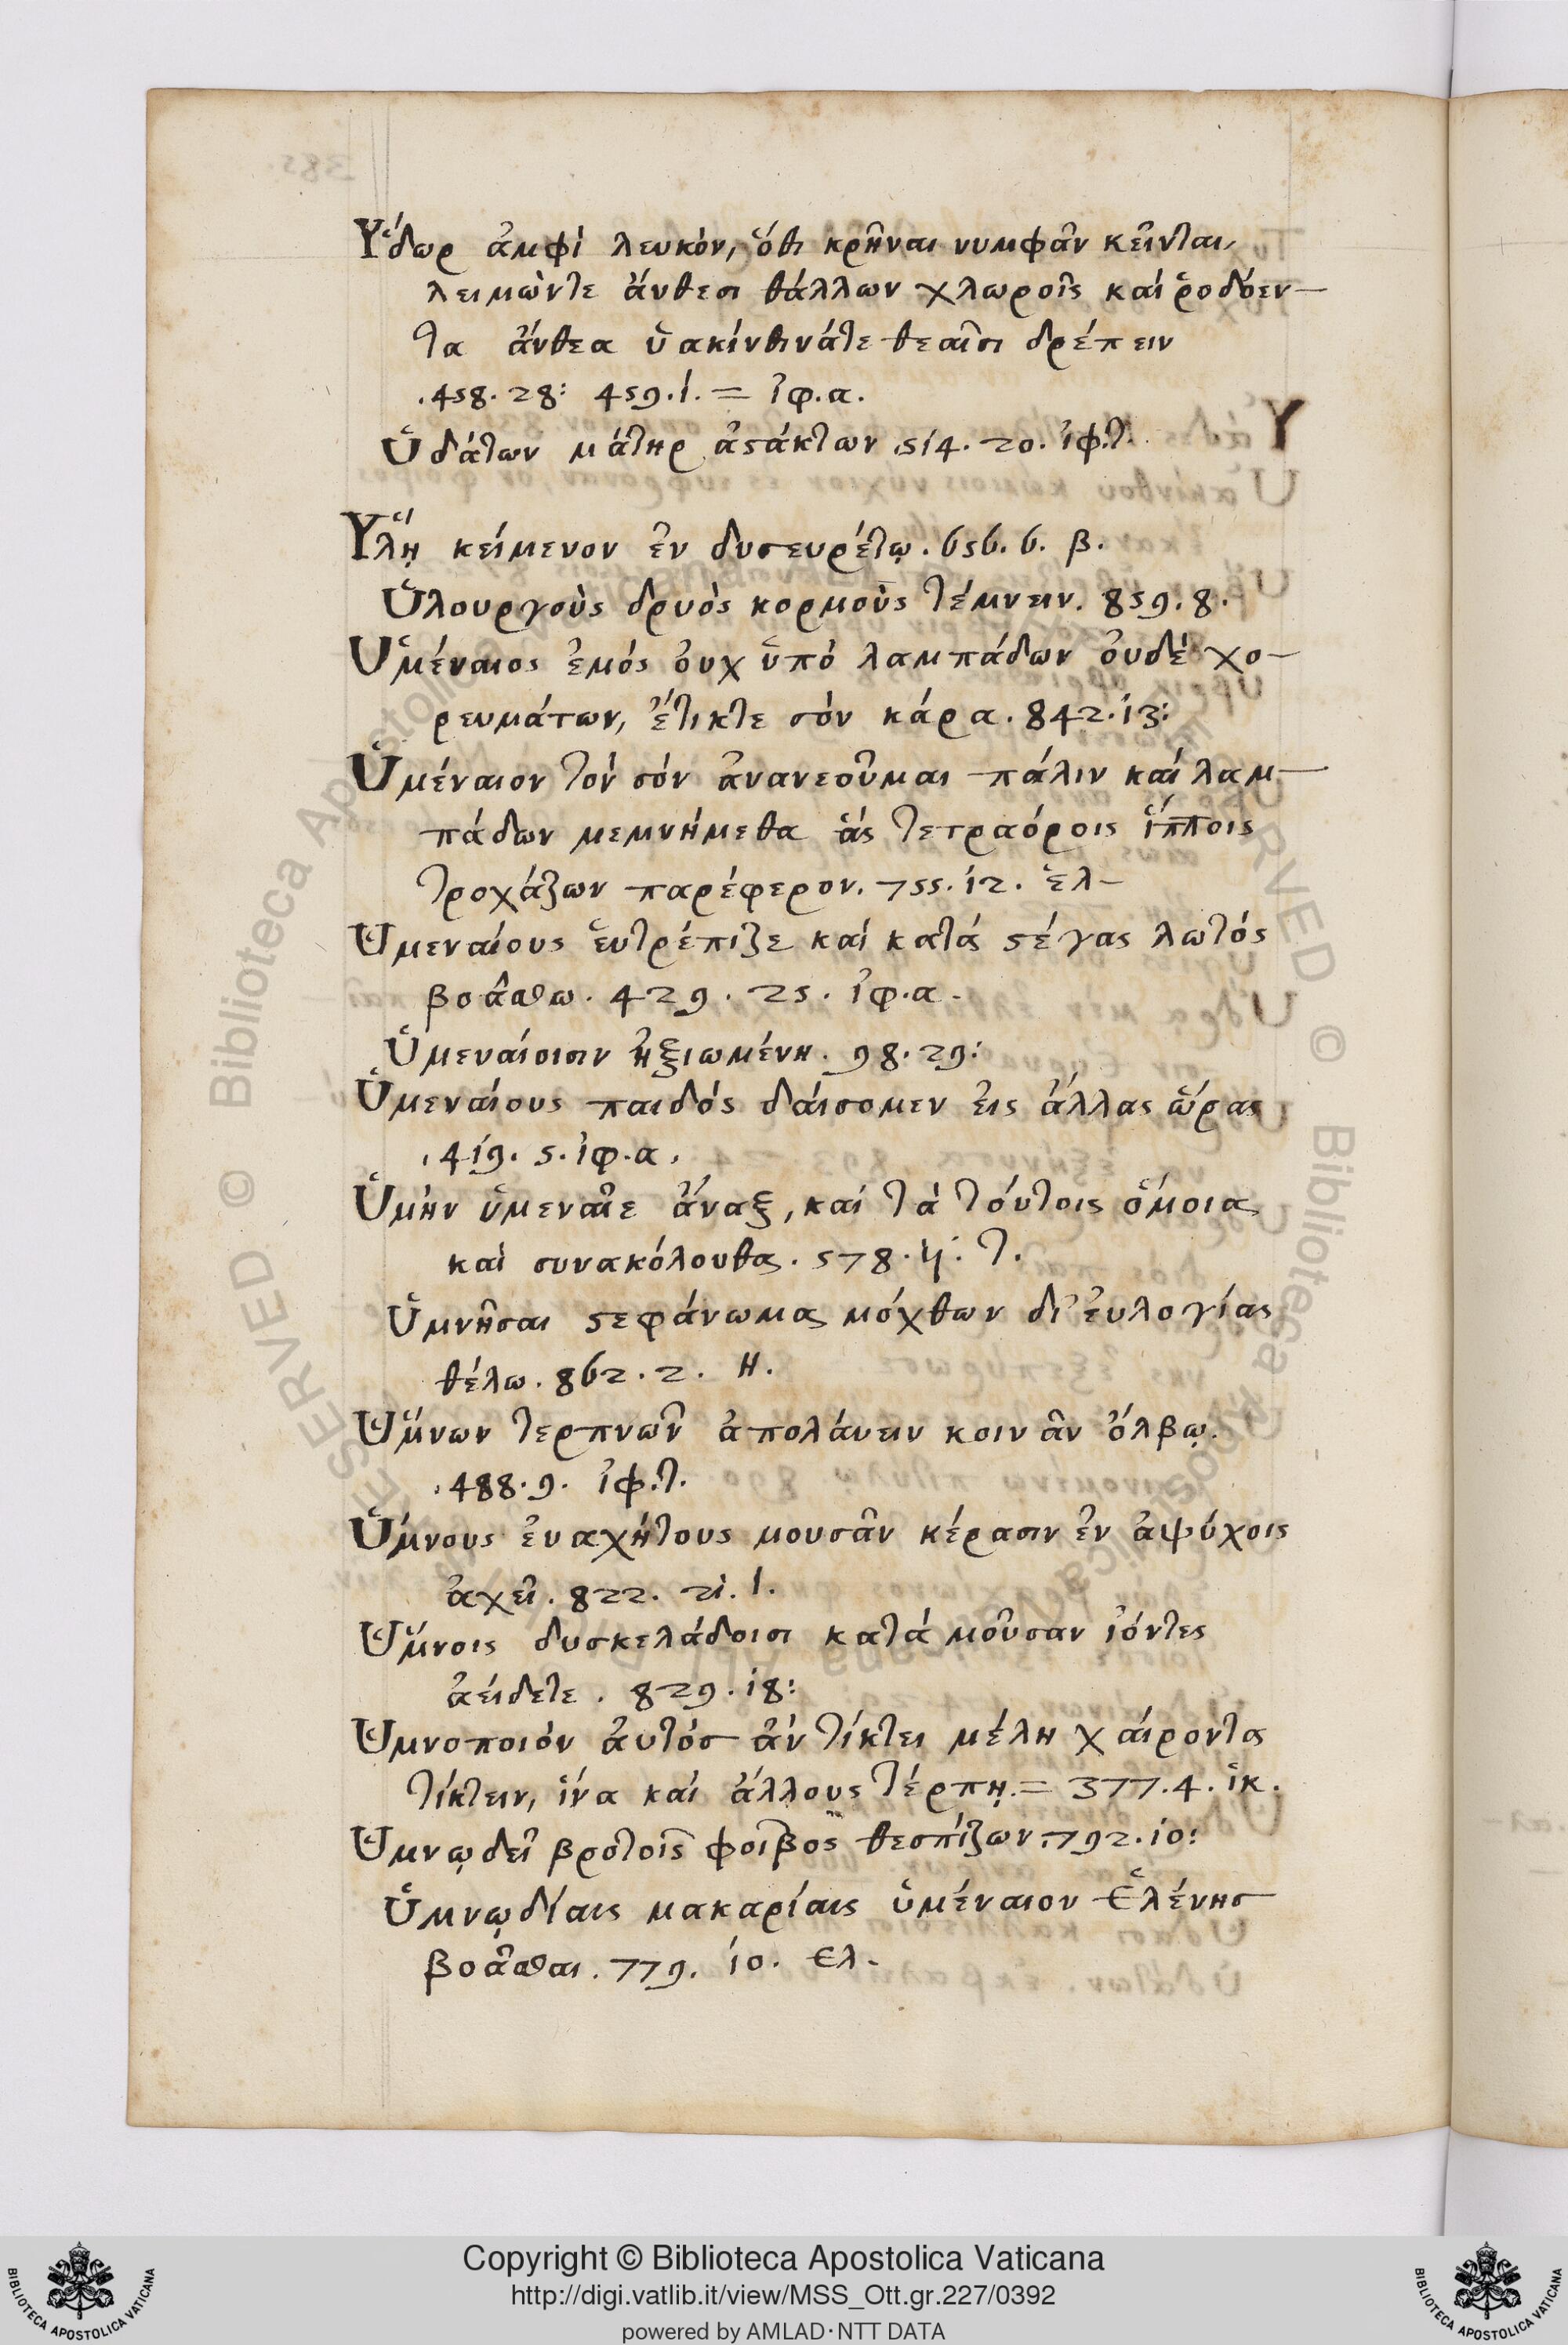 Ὕδωρ ἀμφὶ λευκὸν, ὅθι κρῆναι νυμφᾶν κεῖνται,
λειμών τε ἄνθεσι θάλλων χλωροῖς καὶ ῥοδόεν-
τα ἄνθεα ὑακίνθινά τε θεαῖσι δρέπειν
.458. 28: 459. 1. = ἰφ. α.
Ὑδάτων μάτηρ ἀστάκτων 514. 20. ἰφ. τ.
Υ
Ὕλῃ κείμενον ἐν δυσευρέτῳ. 656. 6. β.
Ὑλουργοὺς δρυὸς κορμοὺς τέμνειν. 859. 8.
Ὑμέναιος ἐμός οὐχ ὑπὸ λαμπάδων οὐδὲ χο-
ρευμάτων, ἔτικτε σὸν κάρα. 842. 13:
Ὑμέναιον τὸν σόν ἀνανεοῦμαι πάλιν καὶ λαμ-
πάδων μεμνήμεθα ἅς τετραόροις ἵπποις
τροχάζων παρέφερον. 755. 12. ἑλ-
Ὑμεναίους εὐτρέπιζε καὶ κατὰ στέγας λωτός
βοάσθω. 429. 25. ἰφ. α.
Ὑμεναίοισιν ἠξιωμένη. 98. 29:
Ὑμεναίους παιδός δαίσομεν εἰς ἄλλας ὥρας
.419. 5. ἰφ. α.
Ὑμὴν ὑμεναῖε ἄναξ, καὶ τὰ τούτοις ὅμοια,
καὶ συνακόλουθα. 578. τ.
Ὑμνῆσαι στεφάνωμα μόχθων δι' εὐλογίας
θέλω. 862. 2. Η.
Ὕμνων τερπνῶν ἀπολάυειν κοινᾶν ὄλβῳ.
.488. 9. ἰφ. τ.
Ὕμνους ἐυαχήτους μουσᾶν κέρασιν ἐν ἀψύχοις
ἀχεῖ. 822. 21. Ι.
Ὕμνοις δυσκελάδοισι κατὰ μοῦσαν ἰόντες
ἀείδετε. 829. 18:
Ὑμνοποιόν ἀυτὸσ ἂν τίκτει μέλη χαίροντα
τίκτειν, ἵνα καὶ ἄλλους τέρπῃ. = 377. 4. ἱκ.
Ὑμνῳδεῖ βροτοῖς φοῖβος θεσπίζων. 792. 10:
Ὑμνῳδίαις μακαρίαις ὑμέναιον Ἑλένησ
βοᾶσθαι. 779. 10. Ελ-
Copyright © Biblioteca Apostolica Vaticana
http://digi.vatlib.it/view/MSS_Ott.gr.227/0392
powered by AMLAD·NTT DATA